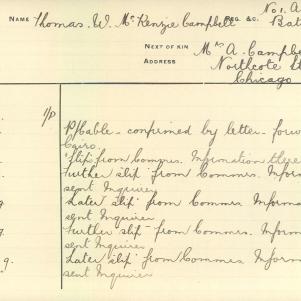 NAME Thomas. W. McKenzie Campbell REG. &C. No 1. A
Bat
NEXT OF KIN Mrs A. Campbe
ADDRESS Northcote St
Chicago
1/P P/Cable - confirmed by letter - forw
Cairo.
"Slip" from Commrs. Information there
Further slip from Commrs. Infor
sent Inquirer
9 Later slip from Commrs Informa
sent Inquirer
9. Further slip from Commrs. Infor
sent Inquirer
9. Later slip from Commrs. Inform
sent Inquirer